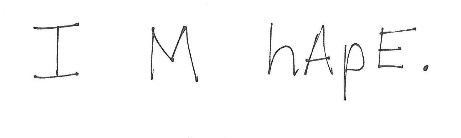 I M hApE.